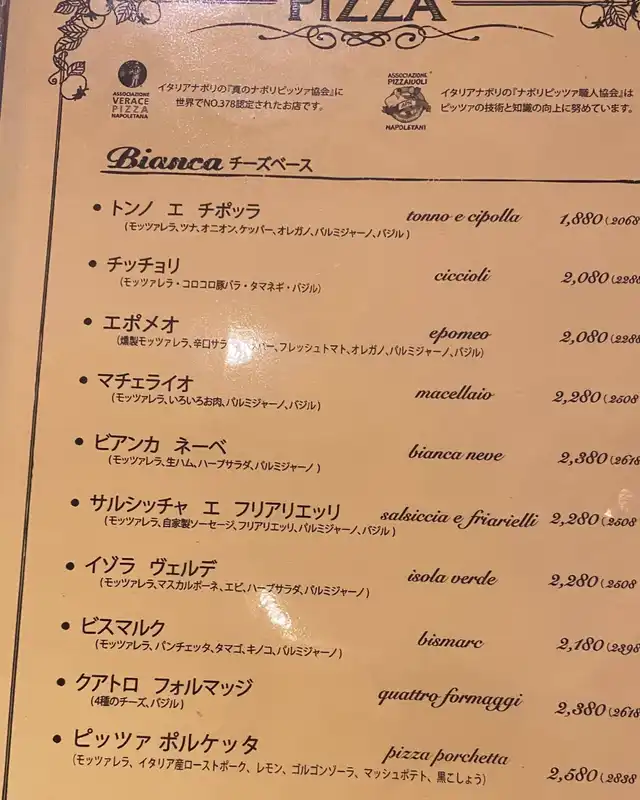 PIZZA
ASSOCIAZIONE
VERACE
PIZZA
NAPOLETANA
イタリアナポリの『真のナポリピッツァ協会』に
世界でNO.378認定されたお店です。
ASSOCIAZIONE
PIZZAIUOLI
NAPOLETANI
イタリアナポリの『ナポリピッツァ職人協会』は
ピッツァの技術と知識の向上に努めています。
Bianca チーズベース
• トンノ エ チポッラ tonno e cipolla 1,880 (2068
(モッツァレラ、ツナ、オニオン、ケッパー、オレガノ、パルミジャーノ、バジル)
• チッチョリ ciccioli 2,080 (2288
(モッツァレラ・コロコロ豚バラ・タマネギ・バジル)
• エポメオ epomeo 2,080 (2288
(燻製モッツァレラ、辛口サラ パー、フレッシュトマト、オレガノ、パルミジャーノ、バジル)
• マチェライオ macellaio 2,280 (2508
(モッツァレラ、いろいろお肉、パルミジャーノ、バジル)
• ビアンカ ネーベ bianca neve 2,380 (2618
(モッツァレラ、生ハム、ハーブサラダ、パルミジャーノ)
• サルシッチャ エ フリアリエッリ salsiccia e friarielli 2,280 (2508
(モッツァレラ、自家製ソーセージ、フリアリエッリ、パルミジャーノ、バジル)
• イゾラ ヴェルデ isola verde 2,280 (2508
(モッツァレラ、マスカルポーネ、エビ、ハーブサラダ、パルミジャーノ)
• ビスマルク bismarc 2,180 (2398
(モッツァレラ、パンチェッタ、タマゴ、キノコ、パルミジャーノ)
• クアトロ フォルマッジ quattro formaggi 2,380 (2618
(4種のチーズ、バジル)
• ピッツァ ポルケッタ pizza porchetta 2,580 (2838
(モッツァレラ、イタリア産ローストポーク、レモン、ゴルゴンゾーラ、マッシュポテト、黒こしょう)